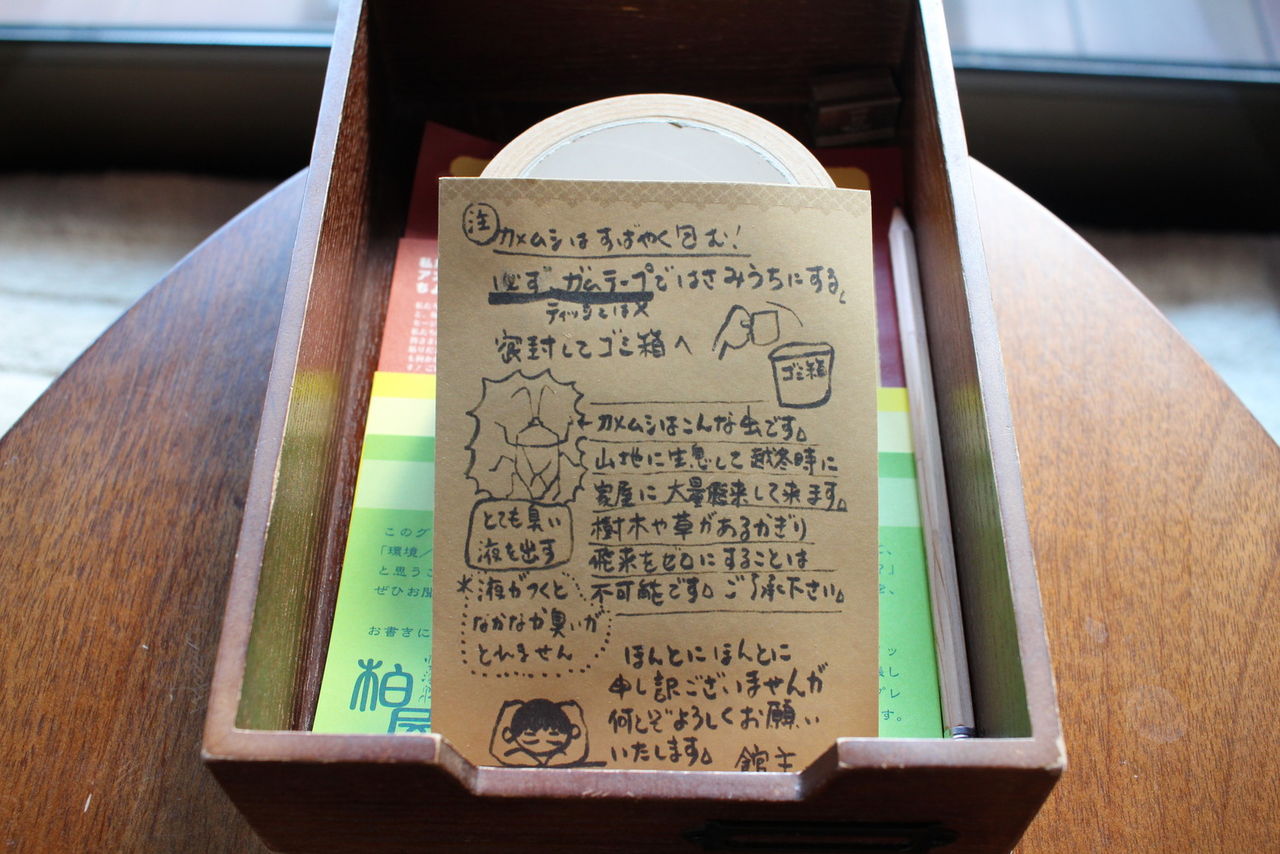 注 カメムシはすばやく包む!
必ず、ガムテープではさみうちにする。
ティッシュは×
密封してゴミ箱へ
ゴミ箱
カメムシはこんな虫です。
山地に生息して越冬時に
家屋に大量飛来して来ます。
樹木や草があるかぎり
飛来をゼロにすることは
不可能です。ご了承下さい。
とても臭い
液を出す
*液がつくと
なかなか臭いが
とれません
ほんとにほんとに
申し訳ございませんが
何とぞよろしくお願い
いたします。
館主
このグ
「環境/
と思うこ
ぜひお聞
お書きに
柏屋